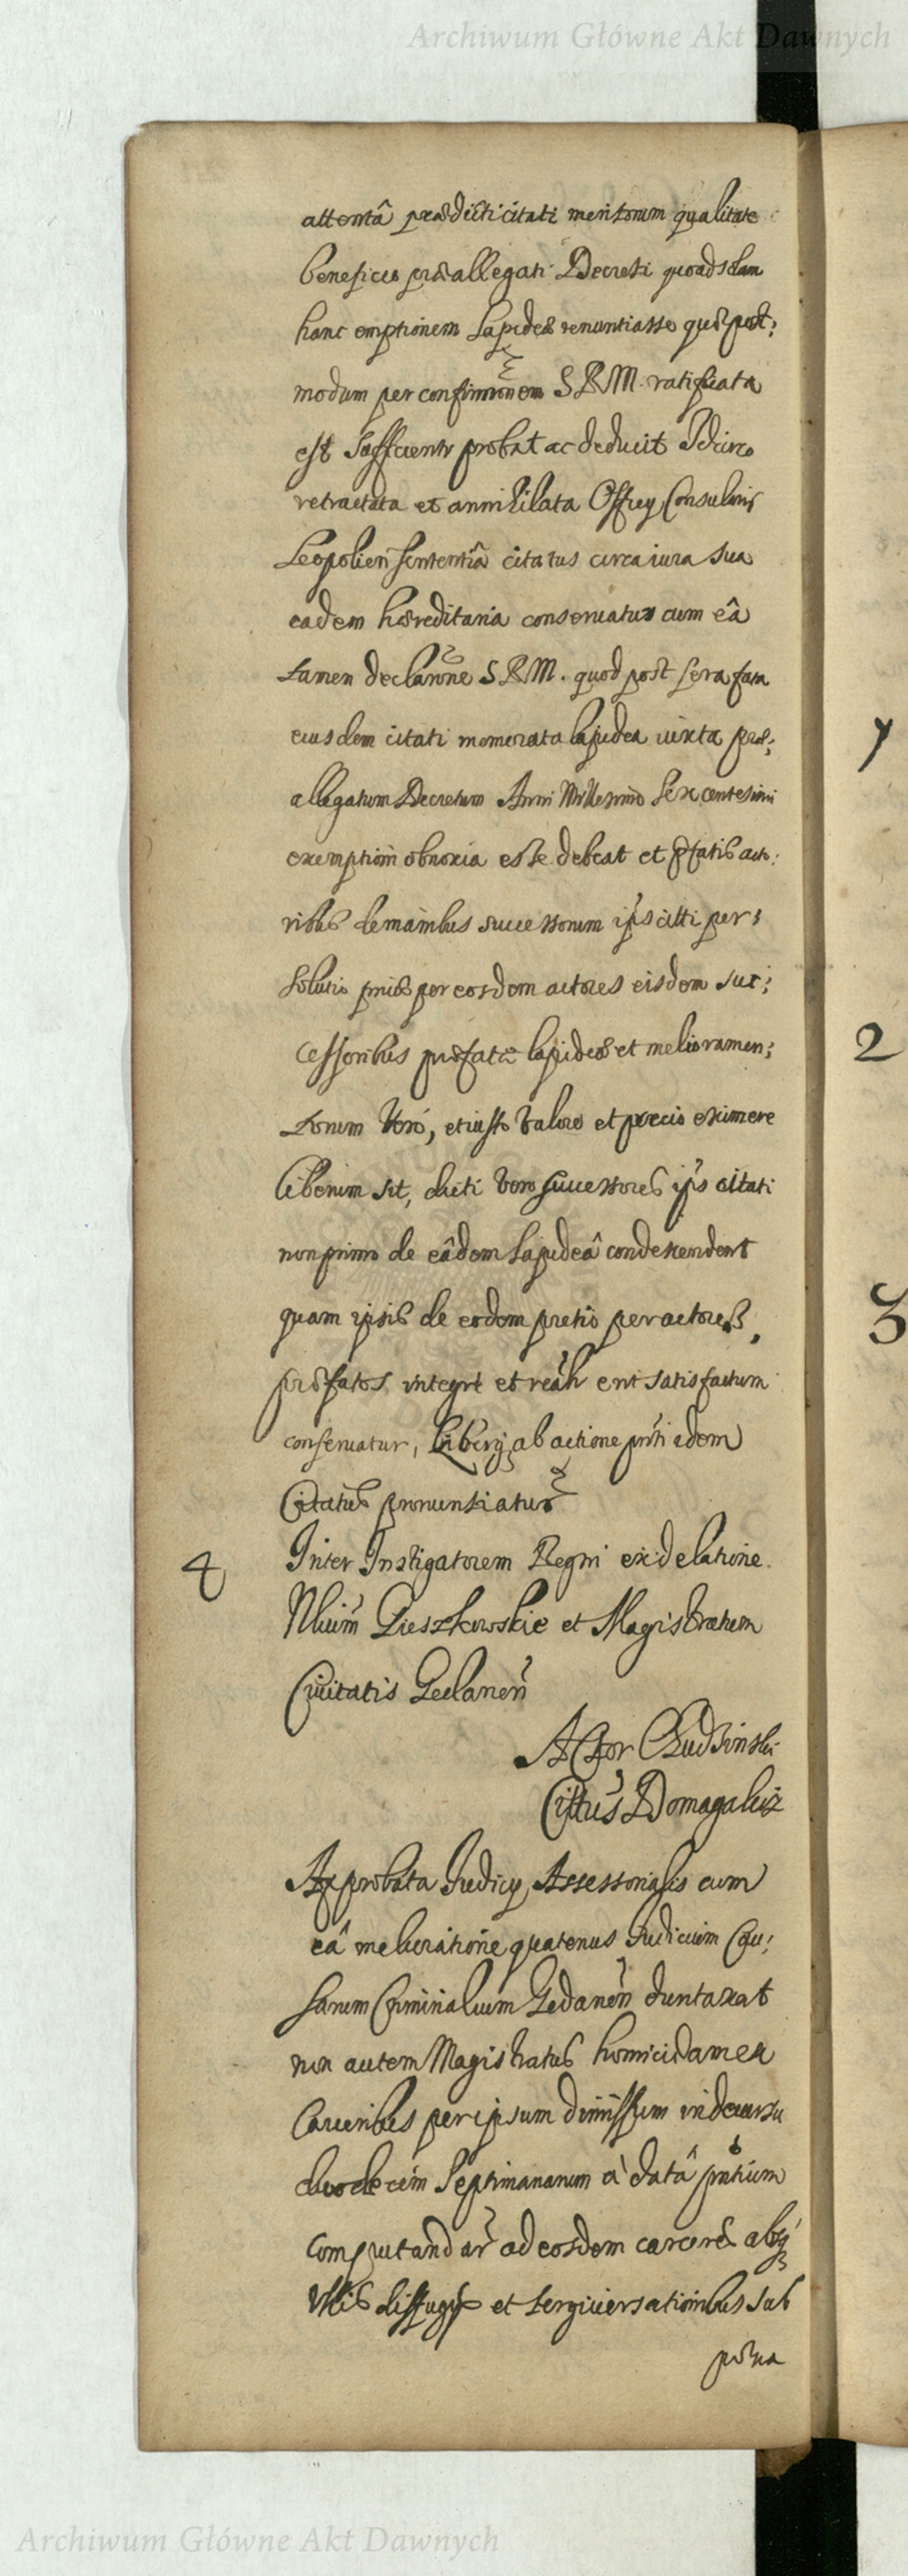 Archiwum Główne Akt Dawnych
attentâ prædicti citati meritorum qualitate
beneficio præallegati Decreti quoad solam
hanc emptionem Lapideæ renuntiasse quæ post:
modum per confirmõnem S R M. ratificata
est sufficientr probat ac deducit Idcirco
retractata et annihilata Officy Consularis
Leopolien sententiâ citatus circa iura sua
eadem hæreditaria conseruatur cum eâ
tamen declarõne S R M. quod post sera fata
eiusdem citati memorata lapidea iuxta præ:
allegatum Decretum Anni Millesimo Sexcentesimi
exemptioni obnoxia esse debeat et pfatis acto:
ribus de manibus successorum ips citti per:
soluto prius per eosdem actores eisdem suc:
cessoribus præfatæ lapideæ et melioramen:
torum vero, et iusto valore et precio eximere
liberum sit, dicti vero successores ips citati
non primo de eâdem lapideâ condescendent
quam ipsis de eodem pretio per actores
præfatos integre et realr erit satisfactum
conseruatur, liberq ab actione pnti idem
Citatus pronuntiatur
4 Inter Instigatorem Regni ex delatione
Nlium Cieszkowskie et Magistratum
Ciuitatis Gedanen
Actor Chudzinski
Cittus Domagalicz
Approbata Iudicy Assessorialis cum
eâ melioratione quatenus Iudicium Cau:
sarum Criminalium Gedanen duntaxat
non autem Magistratus homicidam ex
Carceribus per ipsum dimissum in decursu
duodecim Septimanarum à datâ pntium
computandar ad eosdem carceres absq
vllis diffugys et tergiuersationibus sub
pœna
y
2
3
Archiwum Główne Akt Dawnych